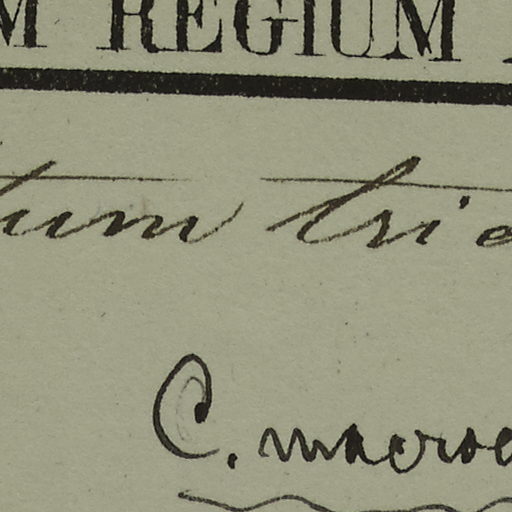 M REGIUM
tum tri
C. macro